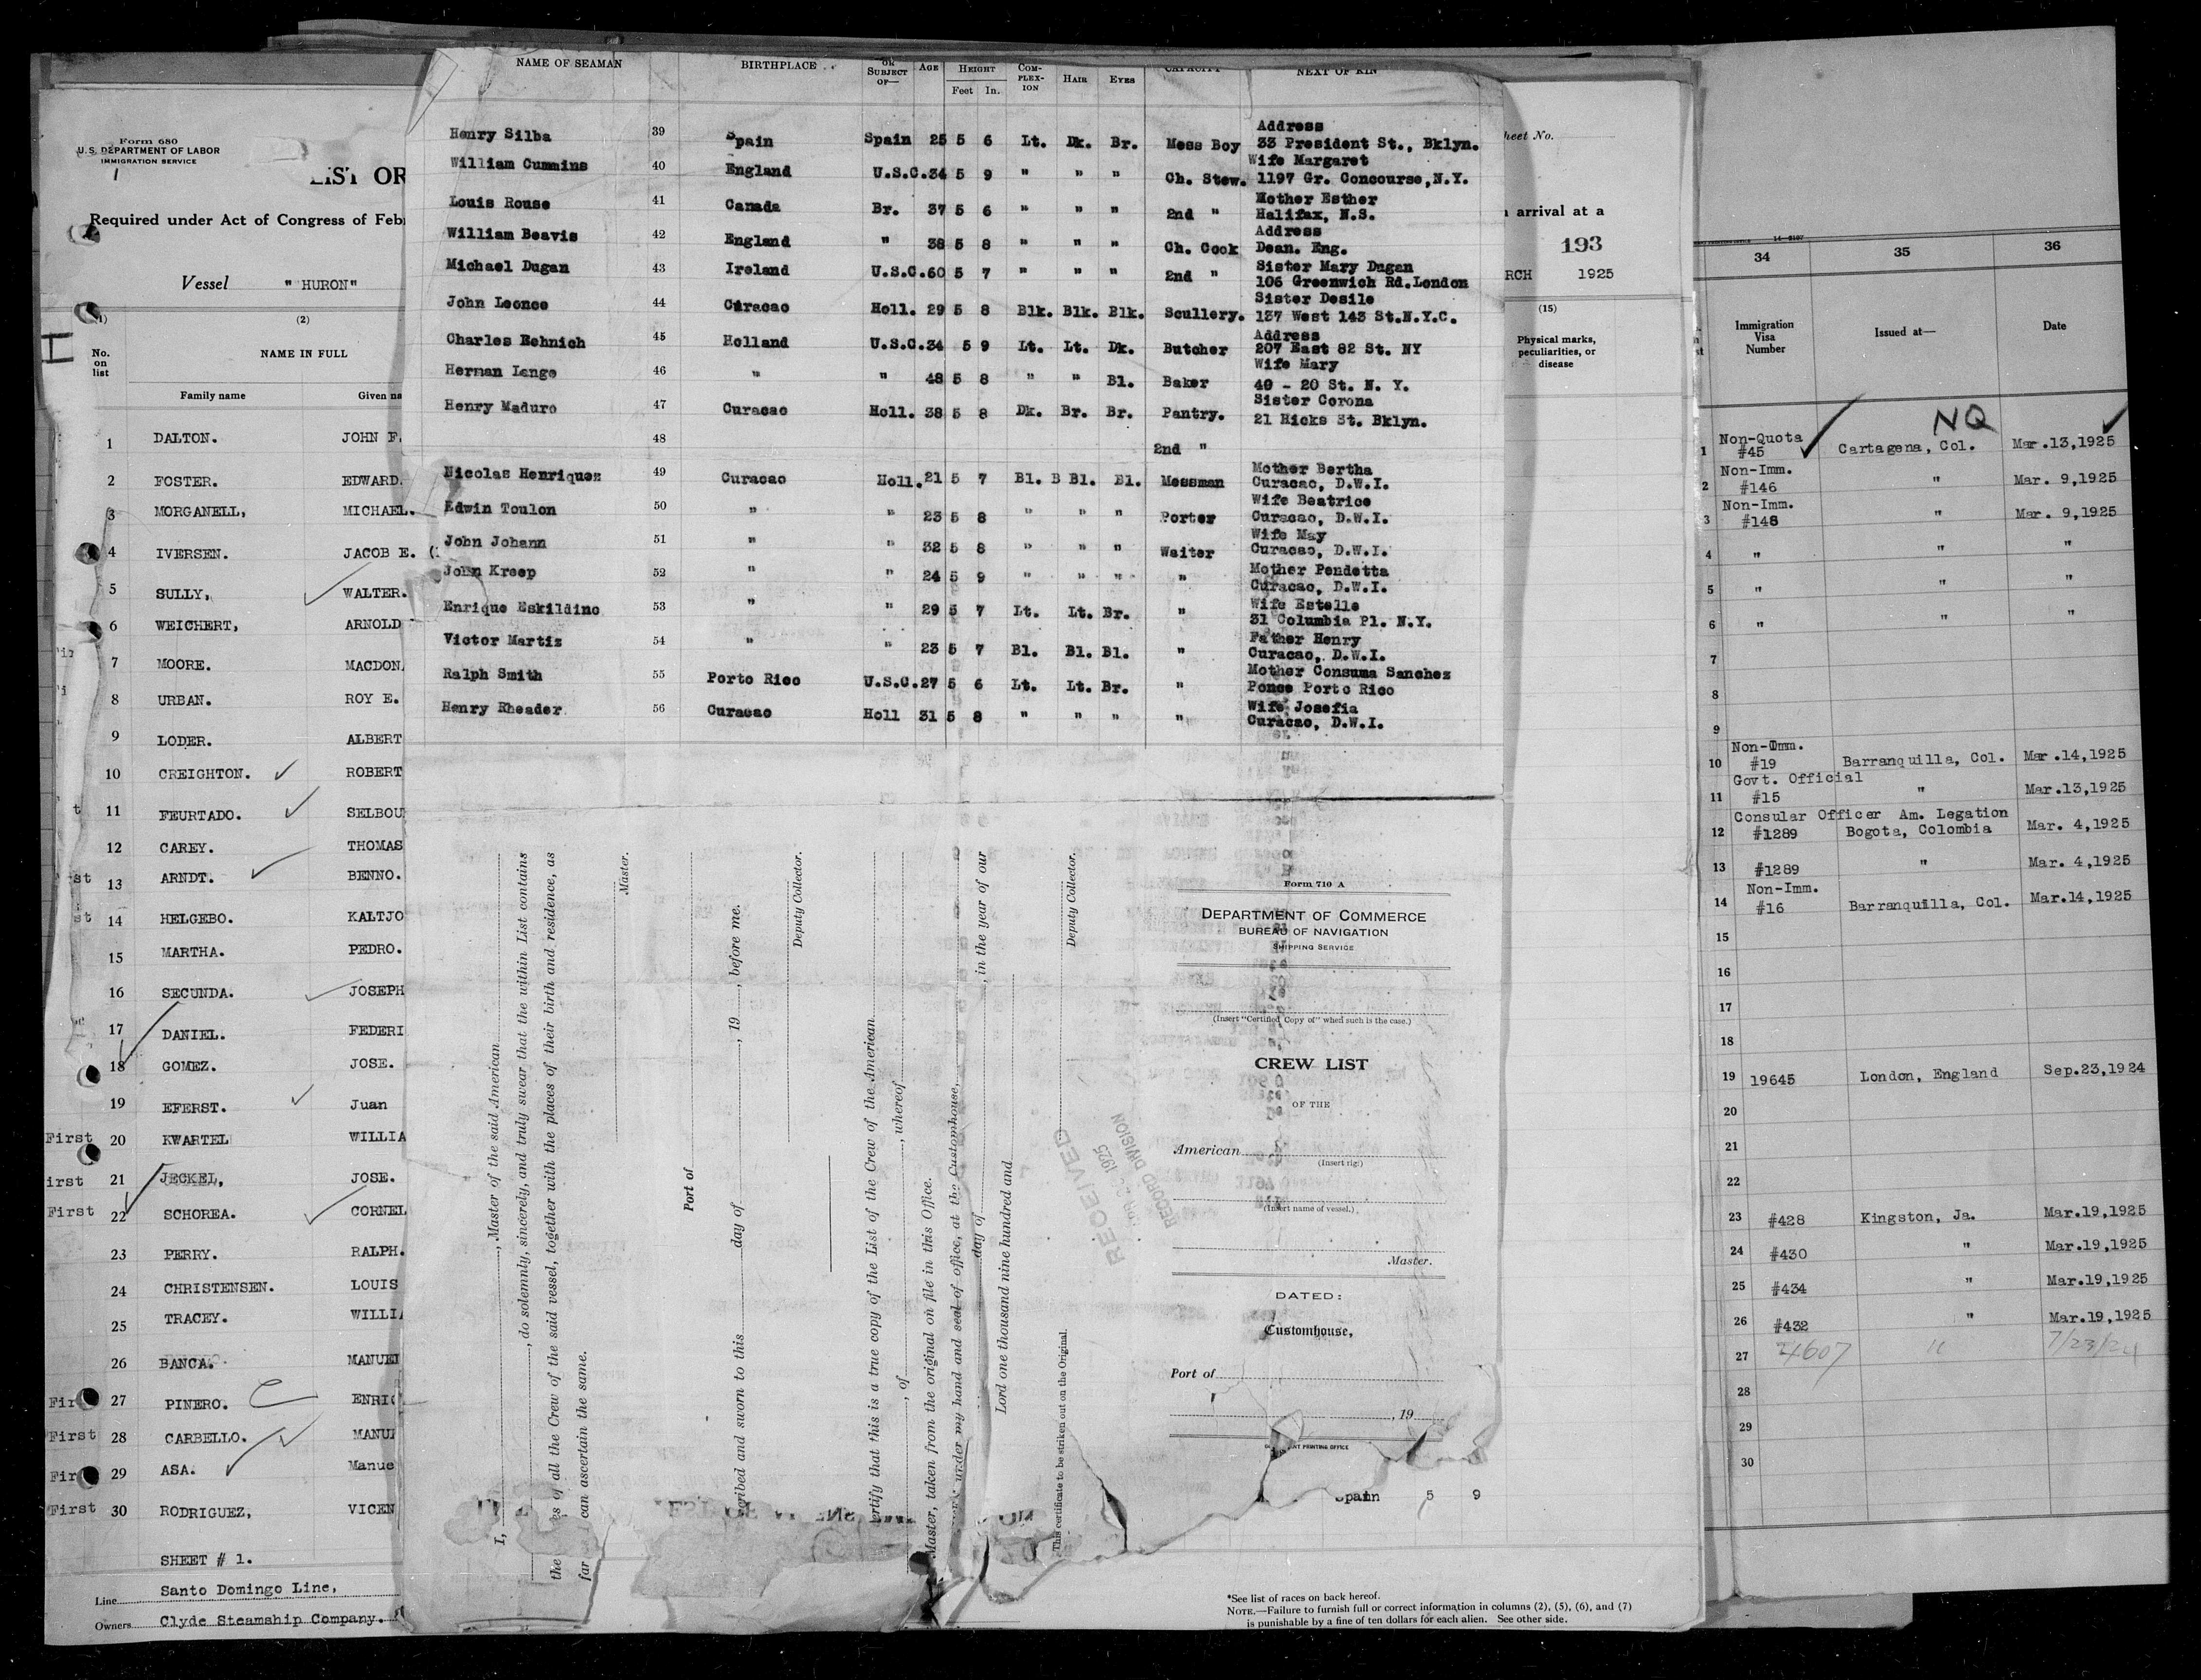 Form 680
U.S. DEPARTMENT OF LABOR
IMMIGRATION SERVICE
1
LIST OR
Required under Act of Congress of Febr
Vessel " HURON"
(2)
No. on list
NAME IN FULL
Family name Given na
1 DALTON. JOHN F.
2 FOSTER. EDWARD.
3 MORGANELL, MICHAEL.
4 IVERSEN. JACOB E. (
5 SULLY, WALTER.
6 WEICHERT, ARNOLD
7 MOORE. MACDON
8 URBAN. ROY E.
9 LODER. ALBERT
10 CREIGHTON. ROBERT
t 11 FEURTADO. SELBOU
12 CAREY. THOMAS
st 13 ARNDT. BENNO.
st 14 HELGEBO. KALTJO
15 MARTHA. PEDRO.
16 SECUNDA. JOSEPH
17 DANIEL. FEDERI
18 GOMEZ. JOSE.
19 EFERST. Juan
First 20 KWARTEL WILLIA
irst 21 JECKEL, JOSE.
First 22 SCHOREA. CORNEL
23 PERRY. RALPH.
24 CHRISTENSEN. LOUIS
25 TRACEY. WILLI
26 BANCA. MANUEL
Fir 27 PINERO. ENRI
First 28 CARBELLO. MANU
Fir 29 ASA. Manue
First 30 RODRIGUEZ, VICEN
SHEET # 1.
Line Santo Domingo Line,
Owners Clyde Steamship Company.
NAME OF SEAMAN BIRTHPLACE OR SUBJECT OF— AGE HEIGHT Feet In. COM-PLEX-ION HAIR EYES CAPACITY NEXT OF KIN
Henry Silba 39 Spain Spain 25 5 6 Lt. Dk. Br. Mess Boy Address
33 President St., Bklyn.
William Cummins 40 England U.S.C. 34 5 9 " " " Ch. Stew. Wife Margaret
1197 Gr. Concourse, N.Y.
Louis Rouse 41 Canada Br. 37 5 6 " " " 2nd " Mother Esther
Halifax, N.S.
William Beavis 42 England " 38 5 8 " " " Ch. Cook Address
Dean. Eng.
Michael Dugan 43 Ireland U.S.C. 60 5 7 " " " 2nd " Sister Mary Dugan
106 Greenwich Rd. London
John Leonce 44 Curacao Holl. 29 5 8 Blk. Blk. Blk. Scullery. Sister Desile
137 West 143 St. N.Y.C.
Charles Eehnich 45 Holland U.S.C. 34 5 9 Lt. Lt. Dk. Butcher Address
207 East 82 St. NY
Herman Lange 46 " " 48 5 8 " " Bl. Baker Wife Mary
40 - 20 St. N. Y.
Henry Maduro 47 Curacao Holl. 38 5 8 Dk. Br. Br. Pantry. Sister Corona
21 Hicks St. Bklyn.
48 2nd "
Nicolas Henriquez 49 Curacao Holl. 21 5 7 Bl. B Bl. Bl. Messman Mother Bertha
Curacao, D.W.I.
Edwin Toulon 50 " " 23 5 8 " " " Porter Wife Beatrice
Curacao, D.W.I.
John Johann 51 " " 32 5 8 " " " Waiter Wife May
Curacao, D.W.I.
John Kreep 52 " " 24 5 9 " " " " Mother Pendetta
Curacao, D.W.I.
Enrique Eskildino 53 " " 29 5 7 Lt. Lt. Br. " Wife Estelle
31 Columbia Pl. N.Y.
Victor Martis 54 " " 23 5 7 Bl. Bl. Bl. " Father Henry
Curacao, D.W.I.
Ralph Smith 55 Porto Rico U.S.C. 27 5 6 Lt. Lt. Br. " Mother Consuma Sanchez
Ponce Porto Rico
Henry Rheader 56 Curacao Holl 31 5 8 " " " " Wife Josefia
Curacao, D.W.I.
I, , Master of the said American
, do solemnly, sincerely, and truly swear that the within List contains
the es of all the Crew of the said vessel, together with the places of their birth and residence, as
far can ascertain the same.
Master.
Port of
cribed and sworn to this day of , 19 , before me.
Deputy Collector.
ertify that this is a true copy of the List of the Crew of the American
, of , whereof
Master, taken from the original on file in this Office.
under my hand and seal of office, at the Customhouse,
day of , in the year of our
Lord one thousand nine hundred and
This certificate to be striken out on the Original.
Deputy Collector.
RECEIVED
1925
RECORD DIVISION
Form 710 A
DEPARTMENT OF COMMERCE
BUREAU OF NAVIGATION
SHIPPING SERVICE
(Insert "Certified Copy of" when such is the case.)
CREW LIST
OF THE
American
(Insert rig)
(Insert name of vessel.)
Master.
DATED:
Customhouse,
Port of
, 19
PRINTING OFFICE
Spain 5 9
heet No.
arrival at a
193
RCH 1925
(15)
Physical marks, peculiarities, or disease
*See list of races on back hereof.
NOTE.—Failure to furnish full or correct information in columns (2), (5), (6), and (7)
is punishable by a fine of ten dollars for each alien. See other side.
34 35 36
Immigration Visa Number Issued at— Date
NQ
1 Non-Quota #45 Cartagena, Col. Mar.13,1925
2 Non-Imm. #146 " Mar. 9,1925
3 Non-Imm. #148 " Mar. 9,1925
4 " " "
5 " " "
6 " " "
7
8
9
10 Non-Imm. #19 Barranquilla, Col. Mar.14,1925
11 Govt. Official #15 " Mar.13,1925
Consular Officer Am. Legation
12 #1289 Bogota, Colombia Mar. 4,1925
13 #1289 " Mar. 4,1925
14 Non-Imm. #16 Barranquilla, Col. Mar.14,1925
15
16
17
18
19 19645 London, England Sep.23,1924
20
21
22
23 #428 Kingston, Ja. Mar.19,1925
24 #430 " Mar.19,1925
25 #434 " Mar.19,1925
26 #432 " Mar.19,1925
27 4607 " 7/23/24
28
29
30